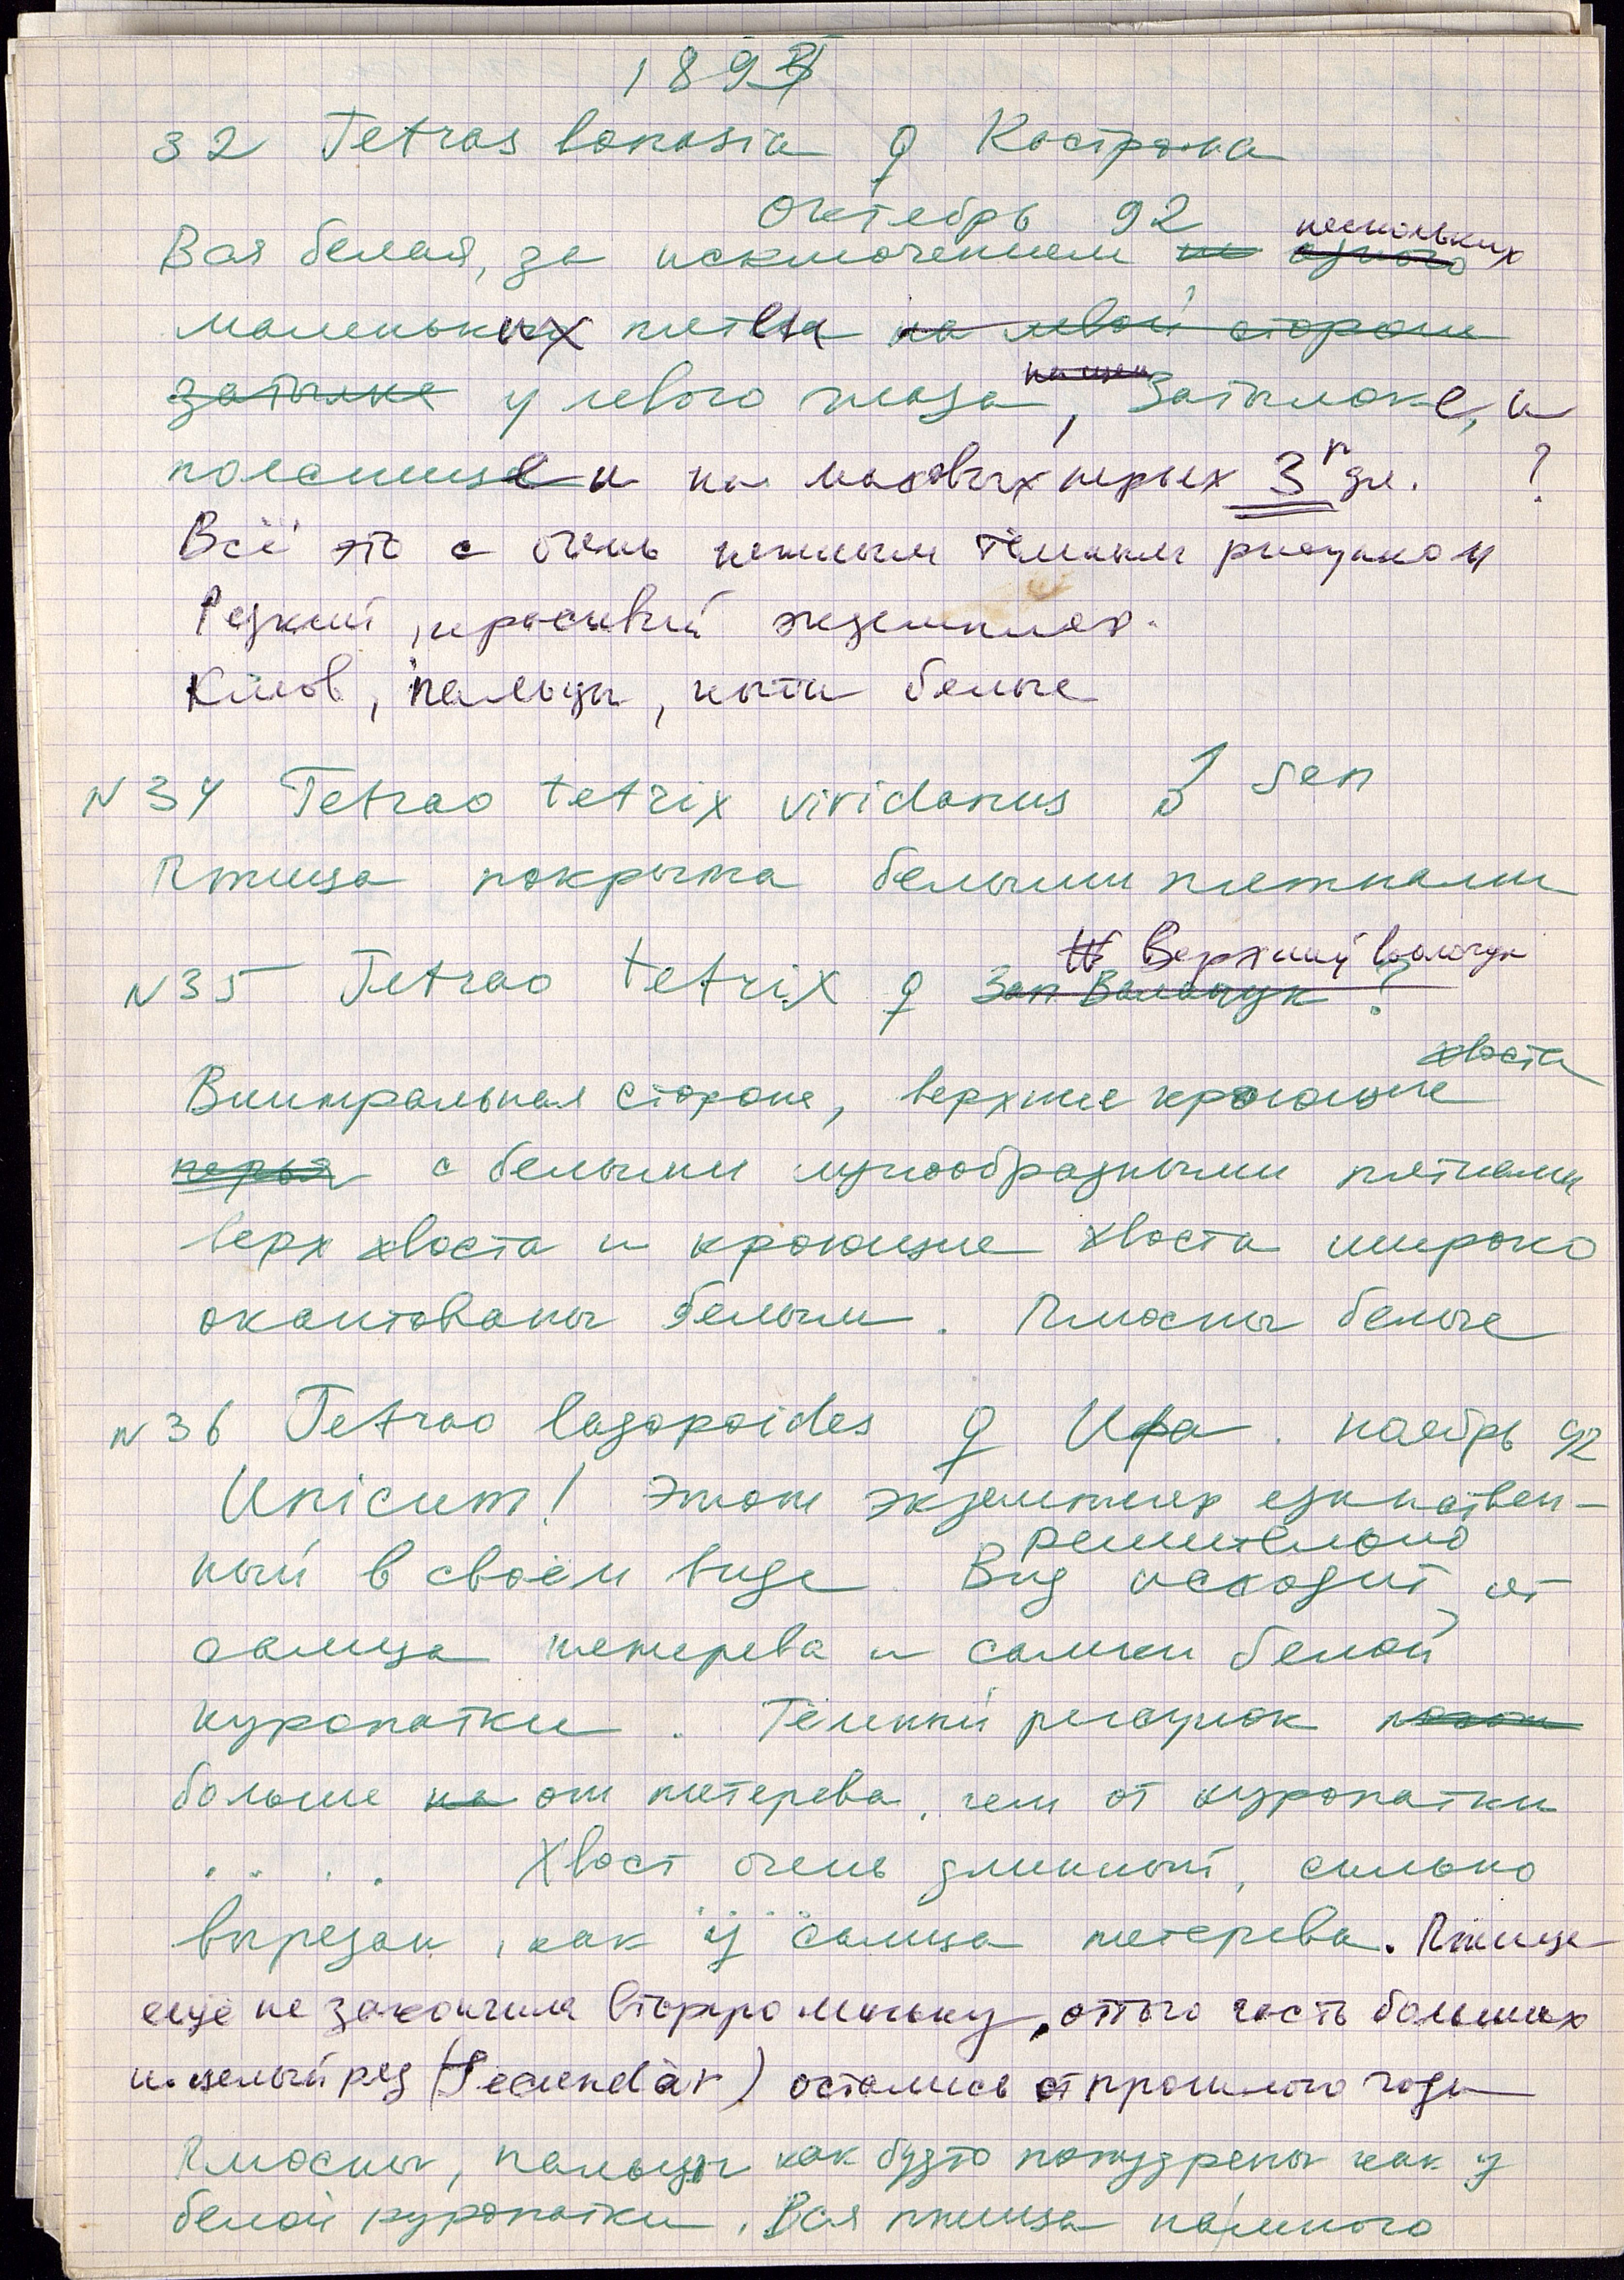 189
32 Tetras bonasia ♀ Кострома
Октебрь 92
нескольких
Вся белая, за исключением не одного
маленьких пятна на левой стороне
затылке у левого глаза, Затылоке, и
пояснице и на маховых перьях 3 г зн. ?
Всё это с очень нежным тёмным рисунком
Редкий, красивый экземпляр.
Клюв, пальцы, когти белые
N 34 Tetrao tetrix viridanus ♂ sen
Птица покрыта белыми пятнами
Верхний Волочук
N 35 Tetrao tetrix ♀ Зап Волочук ?
хвоста
Вентральная сторона, верхние кроющие
перья с белыми лунообразными пятнами
верх хвоста и кроющие хвоста широко
окантованы белым. Плюсны белые
N 36 Tetrao lagopoides ♀ Ufa. ноябрь 92
Unicum! Этот экземпляр единствен-
решительно
ный в своём виде. Вид исходит, от
самца тетерева и самки белой
куропатки. Тёмный рисунок
больше на от тетерева, чем от куропатки
. . . . Хвост очень длинный, сильно
вырезан, как у самца тетерева. Птица
ещё не закончила вторую линьку, оттого часть больших
и целый ряд (Secundär) остались от прошлого года
Плюсны, пальцы как будто попудрены как у
белой куропатки. Вся птица намного